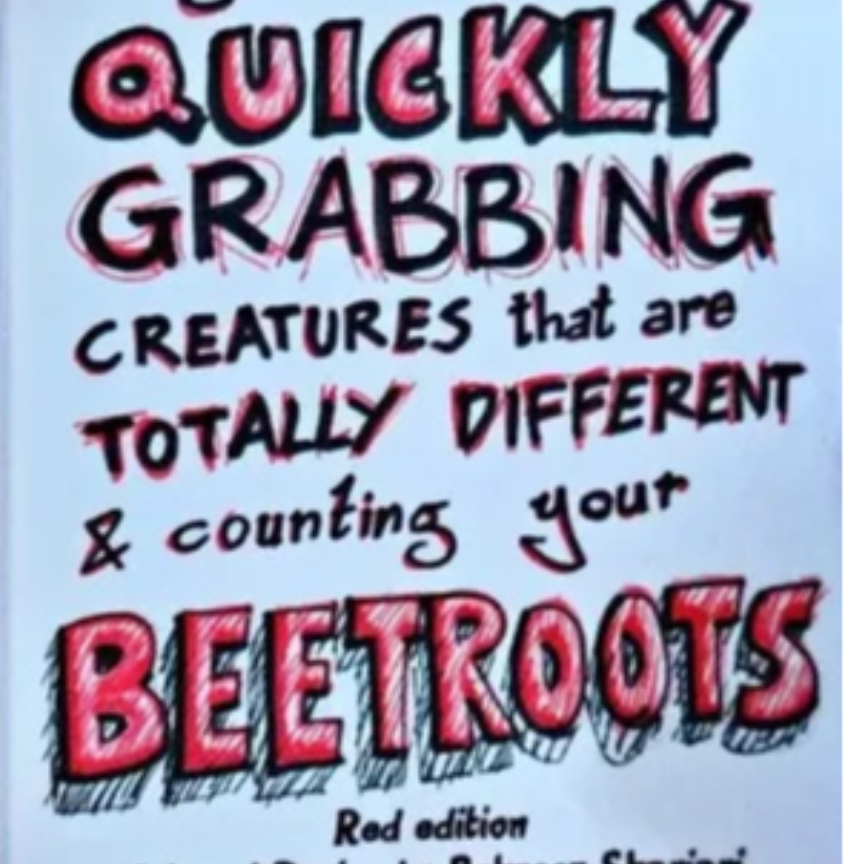 QUICKLY
GRABBING
CREATURES that are
TOTALLY DIFFERENT
& counting your
BEETROOTS
Red edition